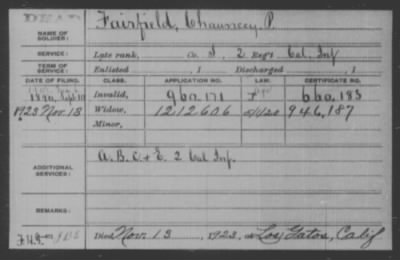 DEAD
NAME OF SOLDIER: Fairfield, Chauncey P.
SERVICE: Late rank, Co. I, 2 Reg't Cal. Inf
TERM OF SERVICE: Enlisted , 1 Discharged , 1
DATE OF FILING. CLASS. APPLICATION NO. LAW. CERTIFICATE NO.
1890, Sept 10 Invalid, 960.171 660.183
1923 Nov. 13 Widow, 1212606 5/1/20 946,187
Minor,
ADDITIONAL SERVICES: A. B. C. + E. 2 Cal Inf.
REMARKS:
Died Nov. 13, 1923, at Los Gatos, Calif